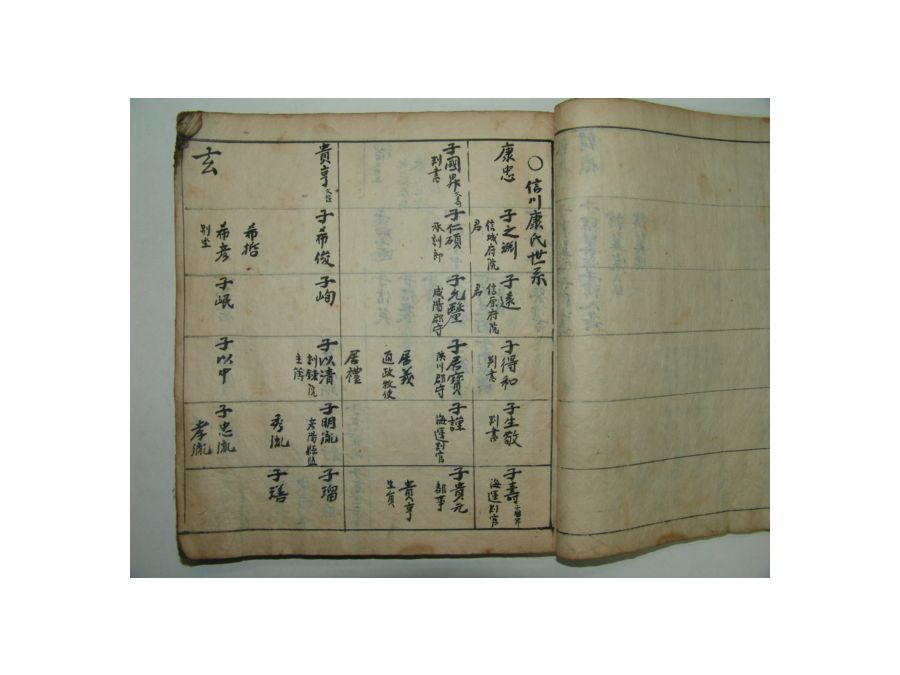 ○信川康氏世系
康忠
子之渊
信城府院君
子遠
信原府院君
子得和
判書
子生敬
判書
子壽
海運判官
子國昇
判書
子仁碩
承訓郎
子允釐
咸陽郡守
子居寶
陜川郡守
居義
通政牧使
居禮
子謹
海運判官
子貴元
都事
貴亨
生員
貴亨
子希俊
希哲
希彦
別坐
子峋
子岷
子以清
主簿
子以中
子明胤
秀胤
子忠胤
孝胤
子瑠
玄